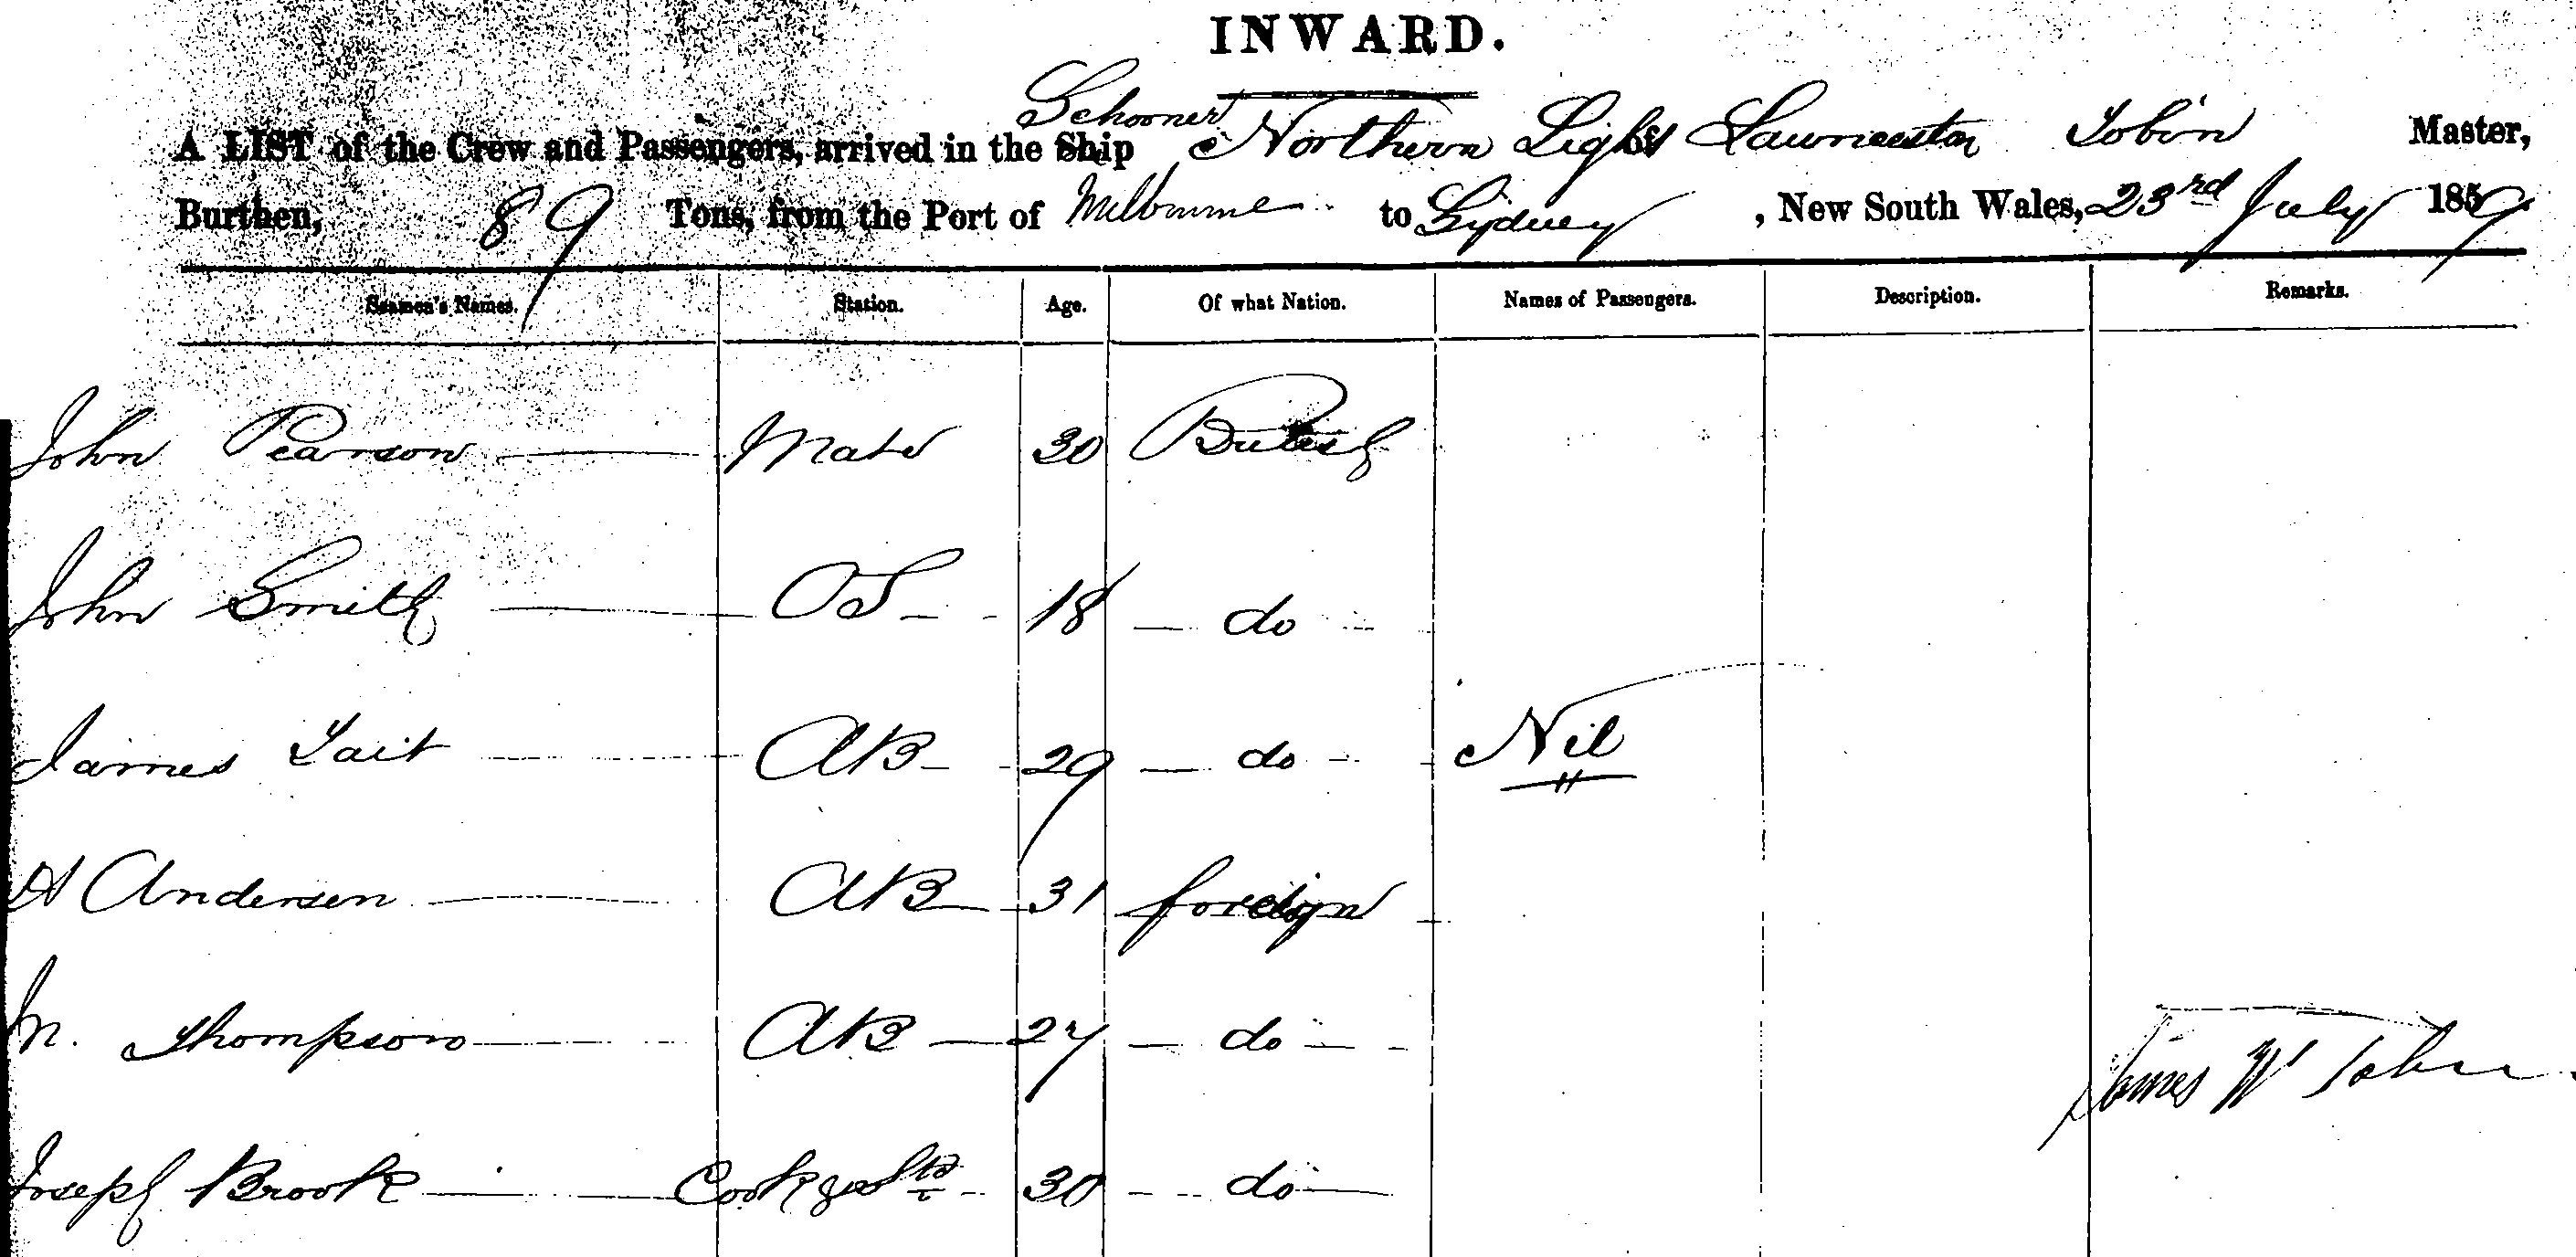 INWARD.
Schooner
A LIST of the Crew and Passengers, arrived in the Ship Northern Light of Launceston Tobin Master,
Burthen, 89 Tons, from the Port of Melbourne to Sydney, New South Wales, 23rd July 1859
Seamen's Names. Station. Age. Of what Nation. Names of Passengers. Description. Remarks.
John Pearson Mate 30 British
John Smith OS 18 do
James Tait AB 29 do Nil
A Andersen AB 31 foreign
M. Thompson AB 27 do
James W Tobin
Joseph Brook Cook & 30 do